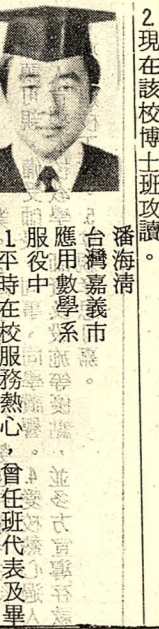 2.現在該校博士班攻讀。
潘海清
台灣嘉義市
應用數學系
服役中
1.平時在校服務熱心，曾任班代表及畢